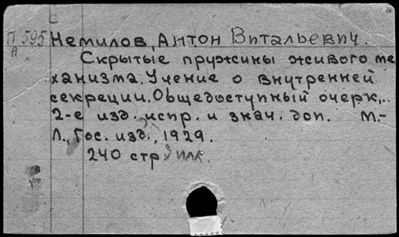 П 595 Немилов, Антон Витальевич.
А
Скрытые пружины живого ме
ханизма. Учение о внутренней
секреции. Общедоступный очерк,..
2-е изд. испр. и знач. доп. М.-
Л., Гос. изд., 1929.
240 стр илл.